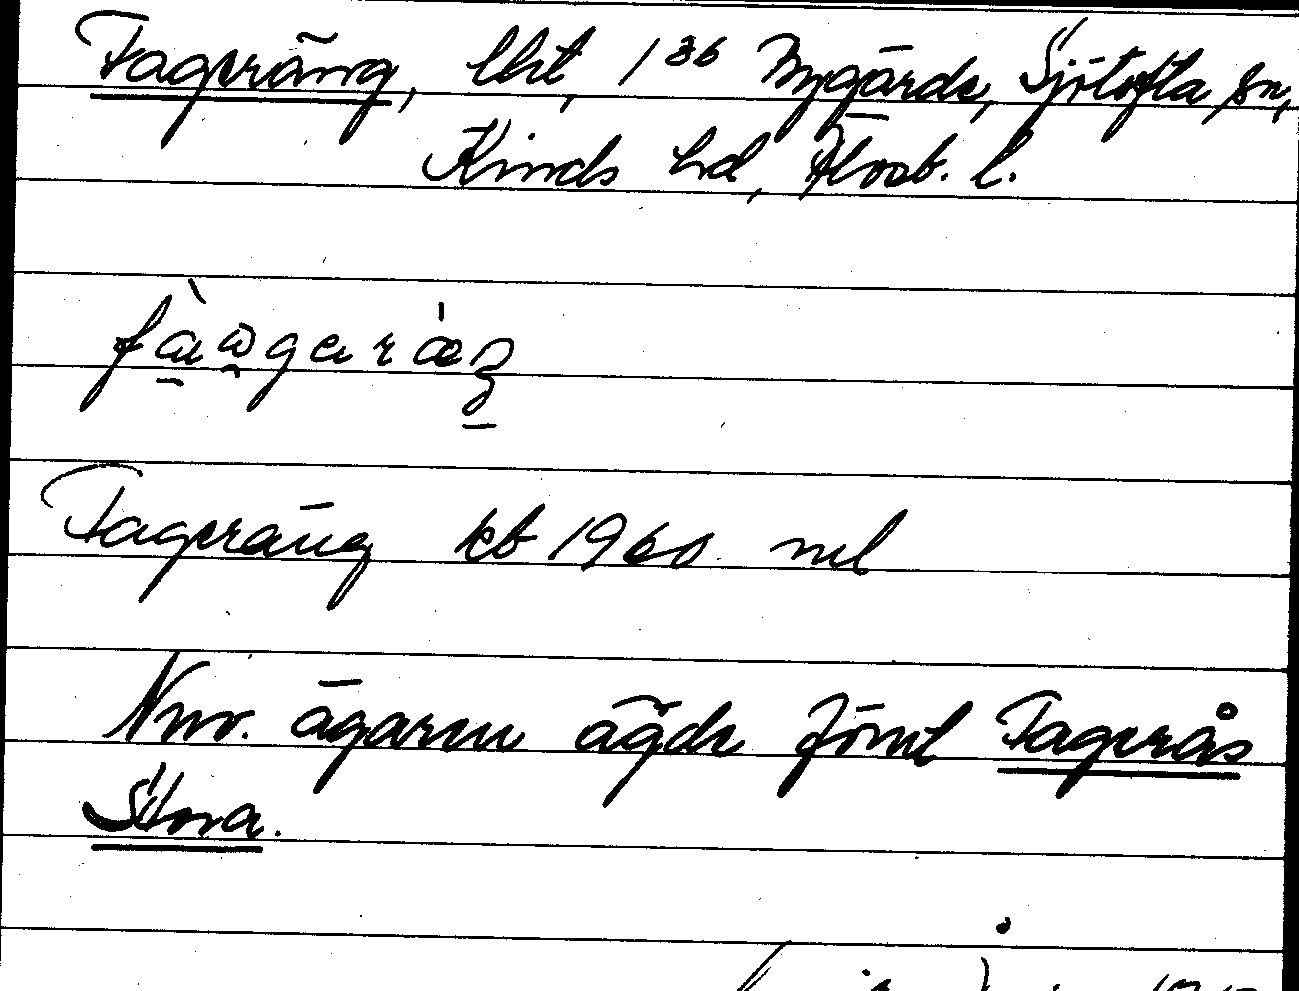 Fageräng, lht, 1³⁶ Nygärde, Sjötofta sn,
Kinds hd, Älvsb. l.
Fageräng kb 1960 ml
Nuv. ägaren ägde förut Fagerås
Stora.